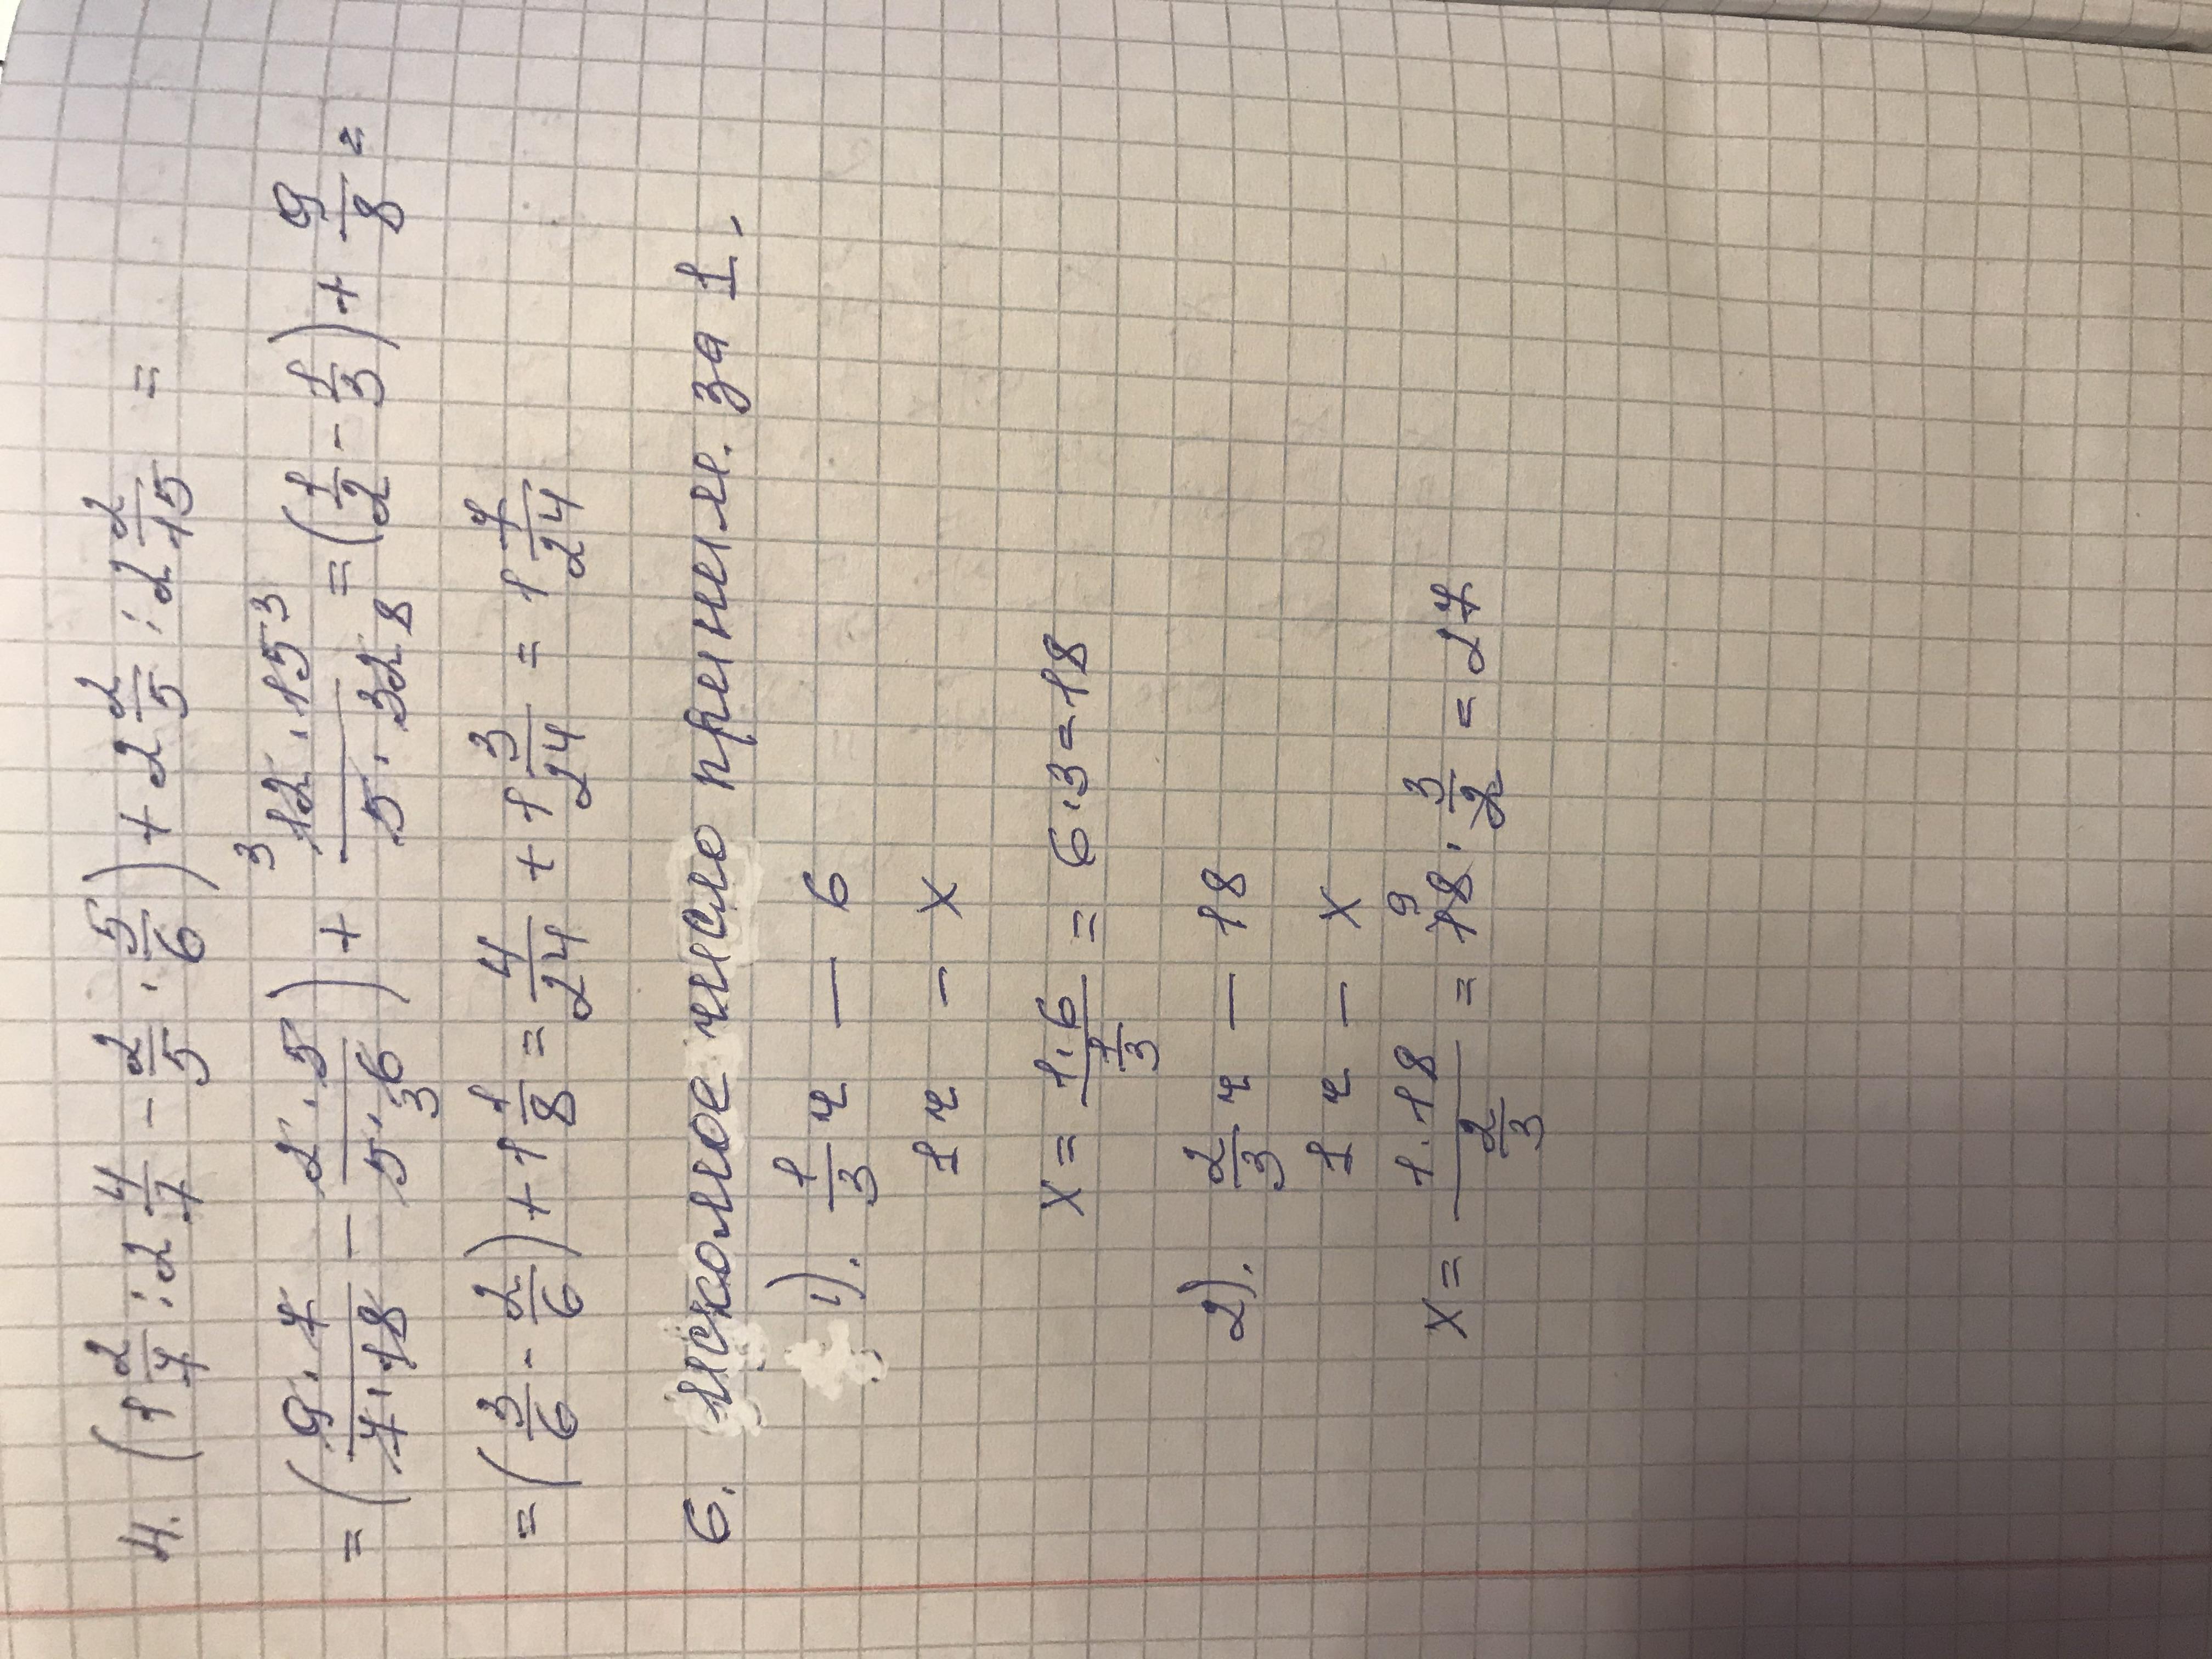 4. (1 2/7 : 2 4/7 - 2/5 · 5/6) + 2 2/5 : 2 2/15 =
= (9 · 7 / 7 · 18 - 2 · 5 / 5 · 6 3) + 3 12 · 15 3 / 5 · 32 8 = (1/2 - 1/3) + 9/8 =
= (3/6 - 2/6) + 1 1/8 = 4/24 + 1 3/24 = 1 7/24
6. искомое число приним. за 1.
1). 1/3 ч — 6
1 ч — х
х = 1 · 6 / 1/3 = 6 · 3 = 18
2). 2/3 ч — 18
1 ч — х
х = 1 · 18 / 2/3 = 9 18 · 3/2 = 27